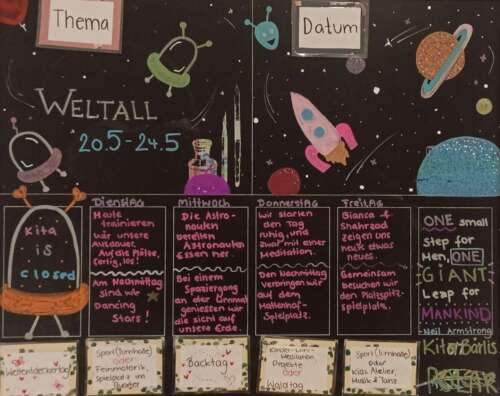 Thema
Datum
WELTALL
20.5-24.5
Kita
is
closed
Dienstag
Heute
trainieren
wir unsere
Ausdauer.
Auf die Plätze,
fertig, los!
Am Nachmittag
sind wir
Dancing
Stars!
Mittwoch
Die Astro-
nauten
bereiten
Astronauten
essen her.
Bei einem
Spaziergang
an der Limmat
geniessen wir
die Sicht auf
unsere Erde.
Donnerstag
Wir starten
den Tag
ruhig, und
zwar mit einer
Meditation.
Den Nachmittag
verbringen wir
auf dem
Spielplatz.
Freitag
Bianca &
Shahrzad
zeigen uns
heute etwas
neues.
Gemeinsam
besuchen wir
den
spielplatz.
ONE small
step for
Men, ONE
GIANT
Leap for
MANKIND
Neil Armstrong
Kita Bärlis
Welten
Sport (Turnhalle)
oder
Feinmotorik,
Spielgeld im
Theater
Backtag
Kinder
Meditation
Projekte
oder
Waldtag
Sport (Turnhalle)
oder
Kias Atelier,
Musik & Tanz